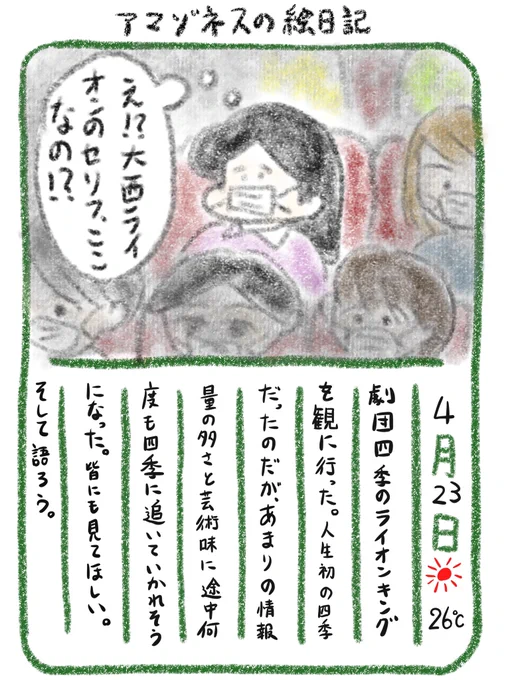 アマゾネスの絵日記
え!?大西ライ
オンのセリフ、ここ
なの!?
4月23日 26℃
劇団四季のライオンキング
を観に行った。人生初の四季
だったのだが、あまりの情報
量の多さと芸術味に途中何
度も四季に追いていかれそう
になった。皆にも見てほしい。
そして語ろう。